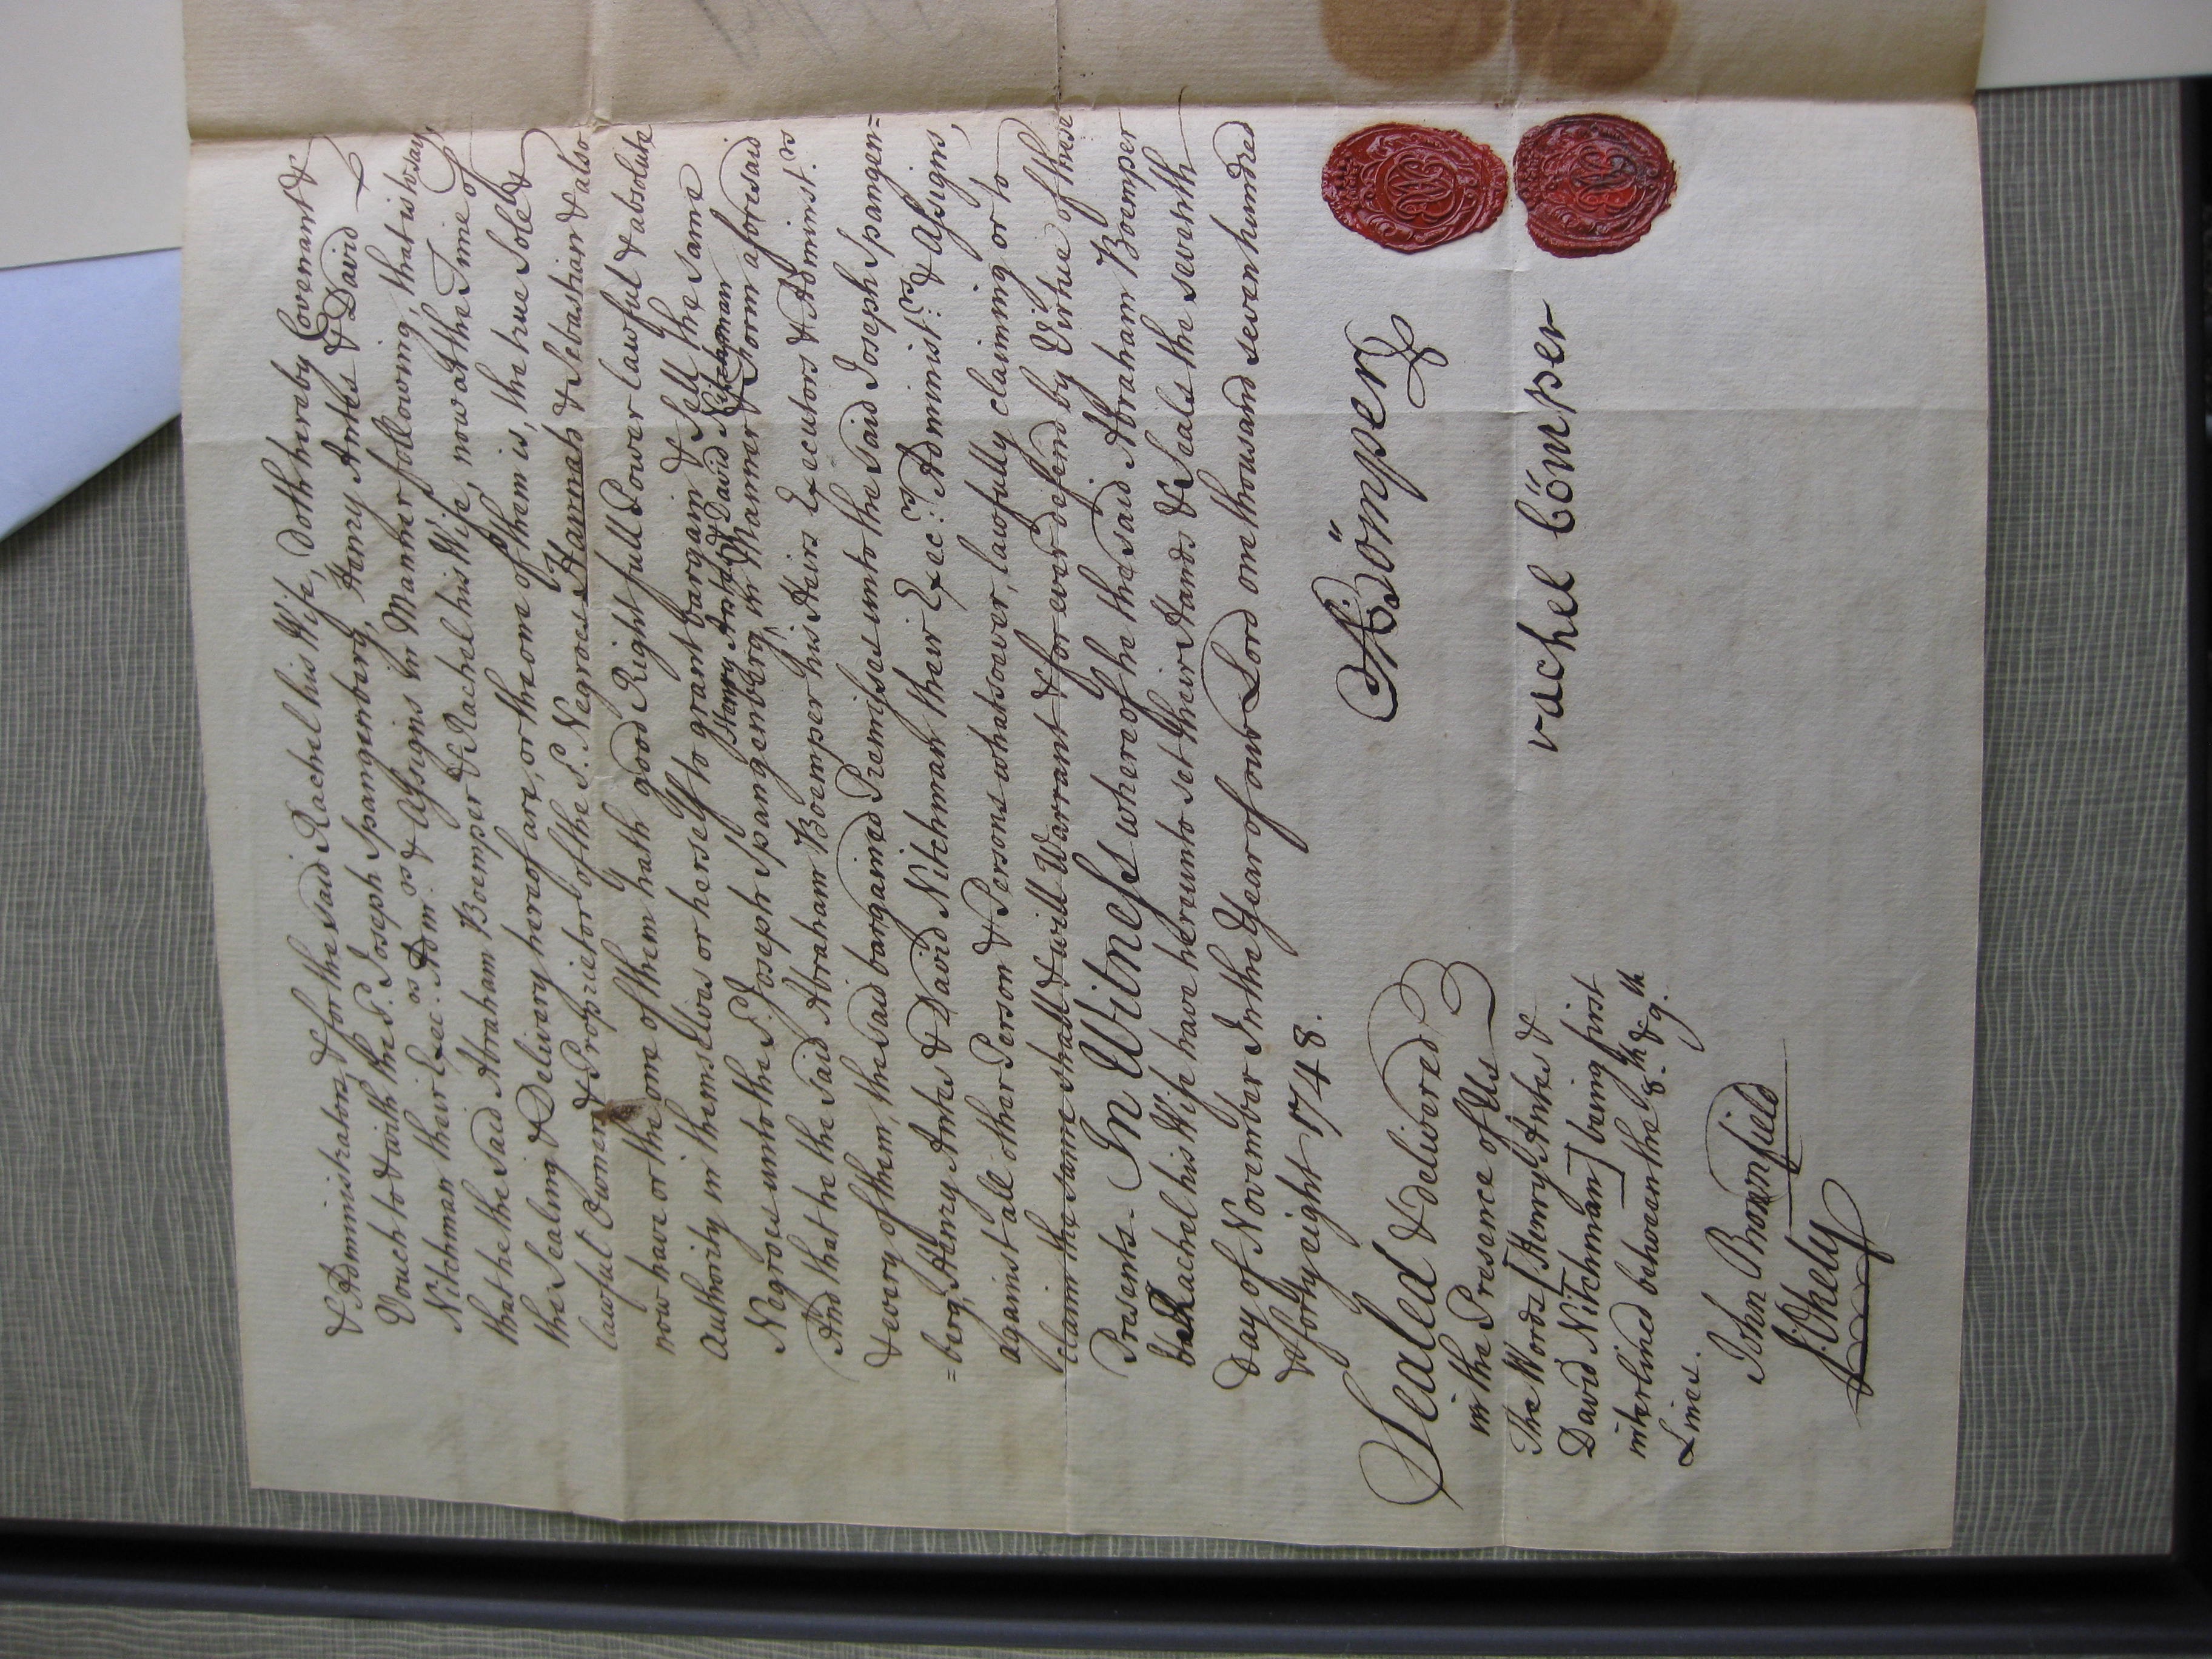 & Administrators, & for the said Rachel his Wife, doth hereby Covenant &
Vouch to & with the sd. Joseph Spangenberg, Henry Antes & David
Nitchman their Exec.rs Adm.rs & Assigns in Manner following, that is to say,
that he the said Abraham Boemper & Rachel his Wife, now at the Time of
the Sealing & Delivery hereof are, or the one of them is, the true Sole &
lawful Owner & Proprietor of the sd. Negroes Hannah & Sebastian & also
now have or the one of them hath good Right full Power lawful & absolute
Authority in themselves or herself to grant bargain & sell the same
Henry Antes & David Nitchman
Negroes unto the sd. Joseph Spangenberg, in Manner & Form aforesaid
And that he the said Abraham Boemper his Heirs Executors & Administ.rs
& every of them, the said bargained Premisses unto the said Joseph Spangen=
=berg, Henry Antes & David Nitchman their Exec.rs Administ.rs & Assigns,
against all other Person & Persons whatsoever, lawfully claiming or to
claim the same shall & will Warrant & for ever defend by Virtue of these
Presents – In Witness whereof he the said Abraham Boemper
Rachel his Wife have hereunto set their Hands & Seals the seventh
Day of November In the Year of our Lord one thousand seven hundred
& forty eight 1748.
Sealed & delivered
in the Presence of Us
The Words [Henry Antes &
David Nitchman] being first
interlined between the 8.th & 9.th
Lines.
A Bömper
rachel bömper
John Brownfield